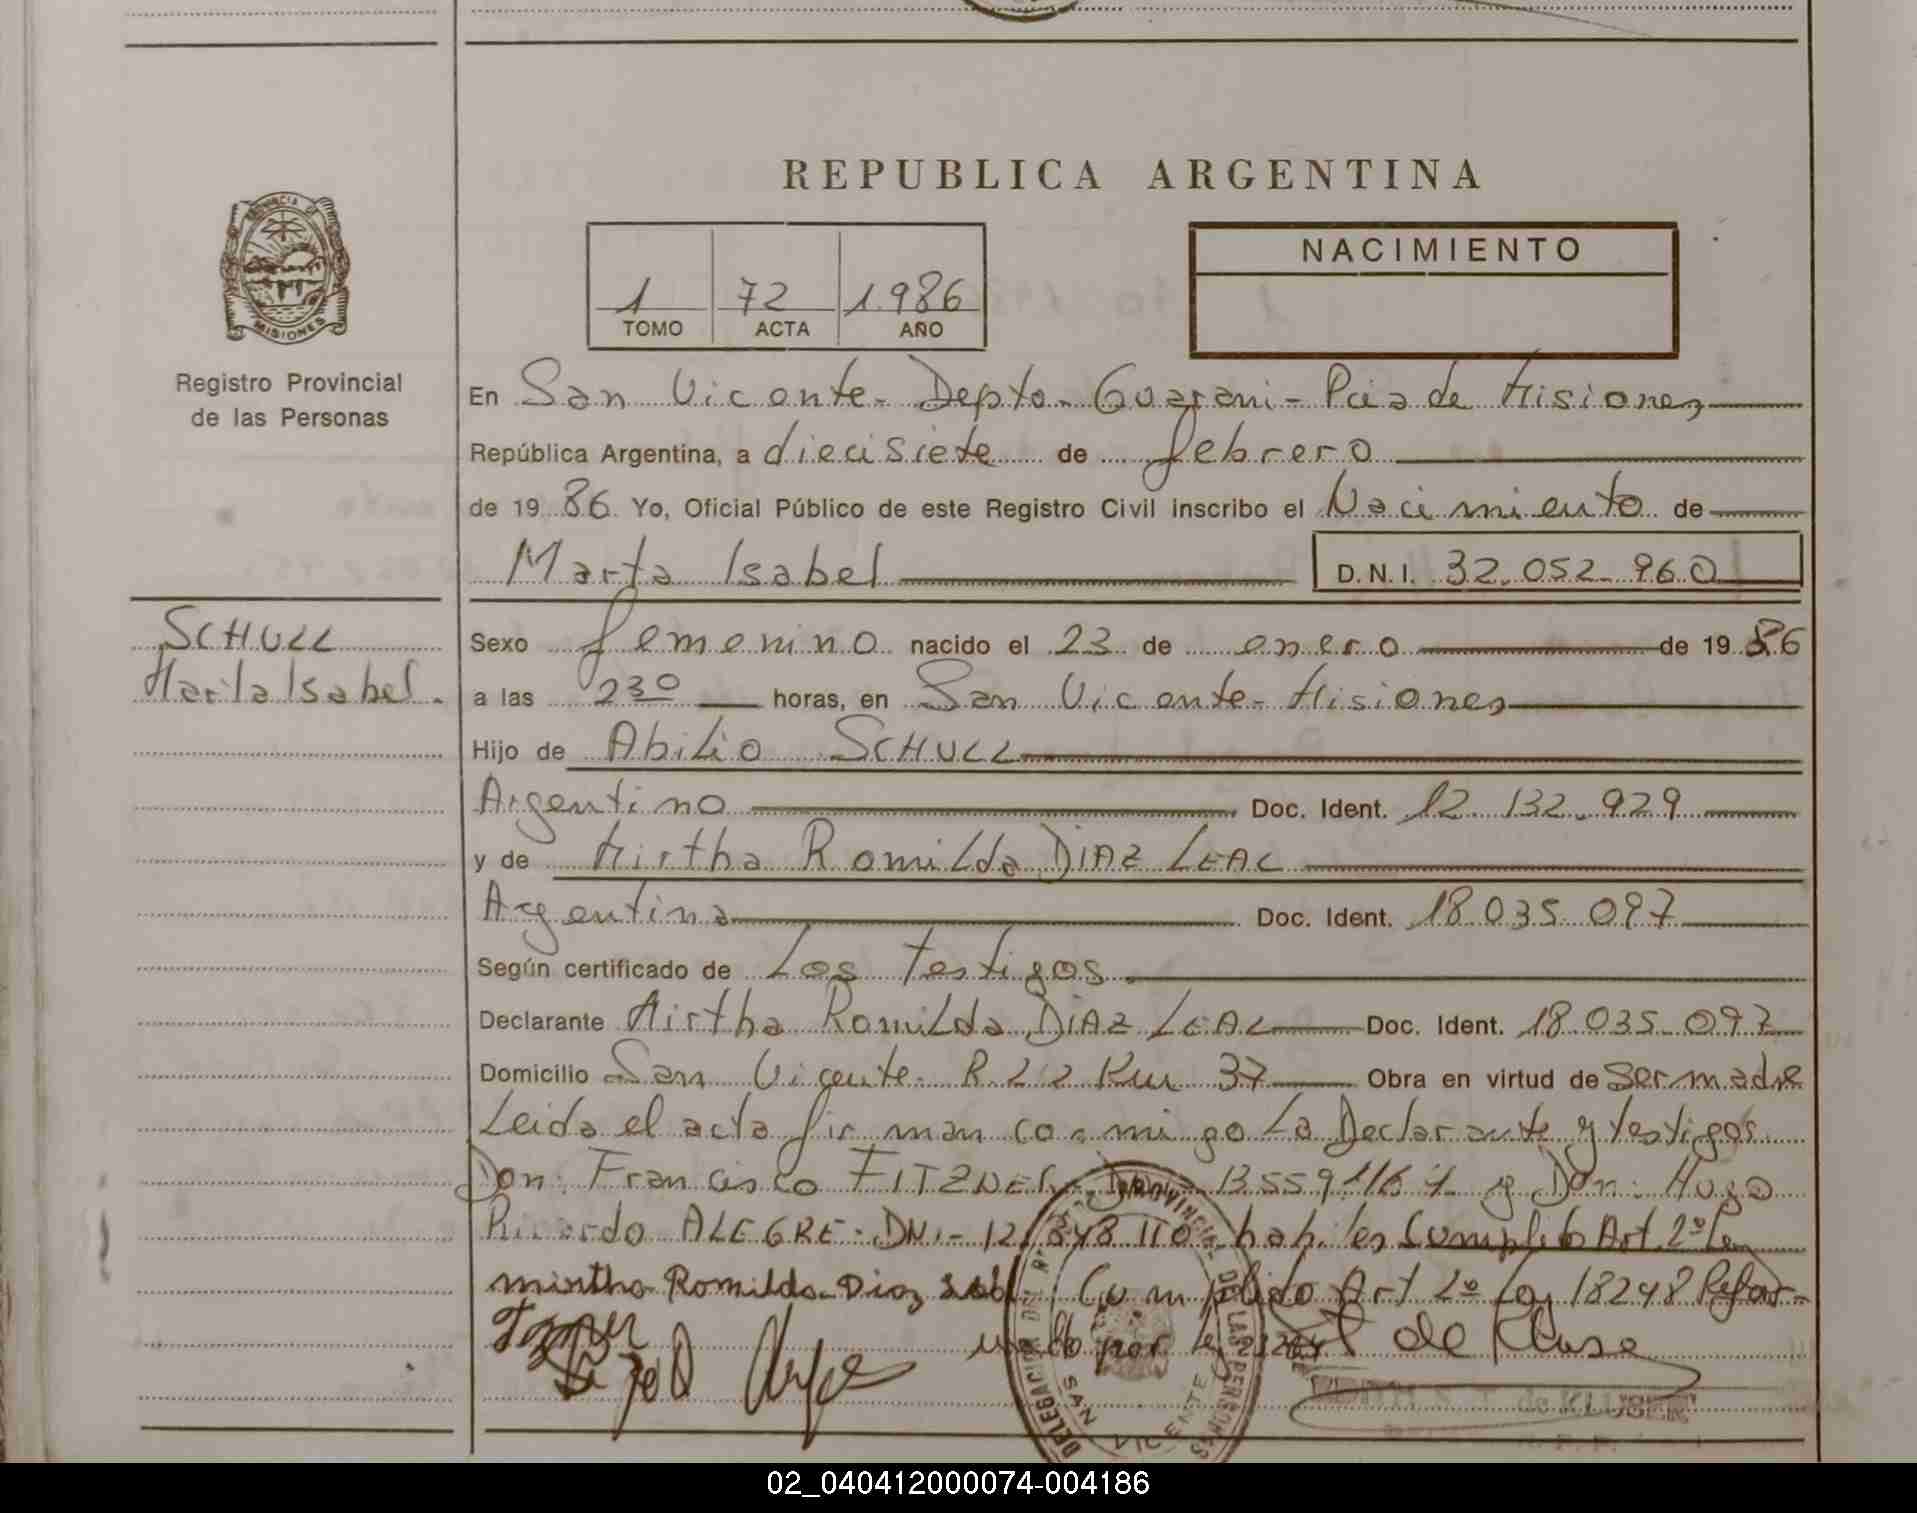 REPUBLICA ARGENTINA
PROVINCIA DE
MISIONES
Registro Provincial
de las Personas
1 72 1.986
TOMO ACTA AÑO
NACIMIENTO
En San Vicente - Depto - Guarani - Pcia de Misiones
República Argentina, a diecisiete de febrero
de 19 86 Yo, Oficial Público de este Registro Civil inscribo el Nacimiento de
Marta Isabel D.N.I. 32.052.960
SCHULL
Marta Isabel.
Sexo femenino nacido el 23 de enero de 19 86
a las 2 30 horas, en San Vicente - Misiones
Hijo de Abilio SCHULL
Argentino Doc. Ident. 12.132.929
y de Mirtha Romilda DIAZ LEAL
Argentina Doc. Ident. 18.035.097
Según certificado de Los Testigos.
Declarante Mirtha Romilda DIAZ LEAL Doc. Ident. 18.035.097
Domicilio San Vicente - R 22 Km 37 Obra en virtud de Ser madre
Leida el acta firman conmigo La Declarante y testigos
Don: Francisco y Don: Hugo
Ricardo ALEGRE - DNI - 12.848.110 habiles Cumplido Art. 2º Ley
mirtha Romilda Diaz Cumplido Art 2º Ley 18248 Refor-
mado por Ley
T. de Kluse
T. de KLUSER
DELEGACION DEL R. PROVINCIAL DE LAS PERSONAS
SAN VICENTE
02_040412000074-004186